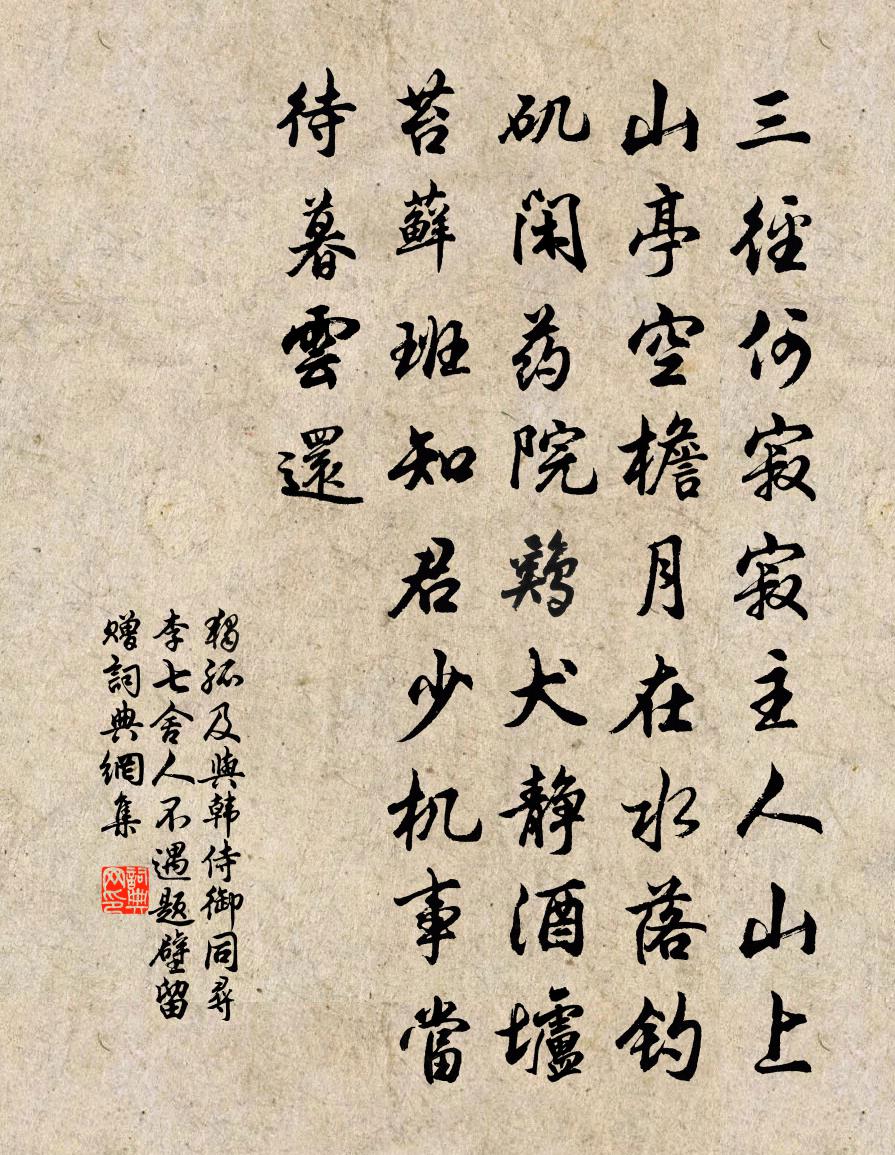 三徑何寂寂主人山上
山亭空檐月在水落钓
矶闲药院鷄犬静酒壚
苔蘚班知君少机事當
待暮雲還
獨孤及與韩侍御同尋
李七舍人不遇題壁留
贈詞典網集
詞典
网印